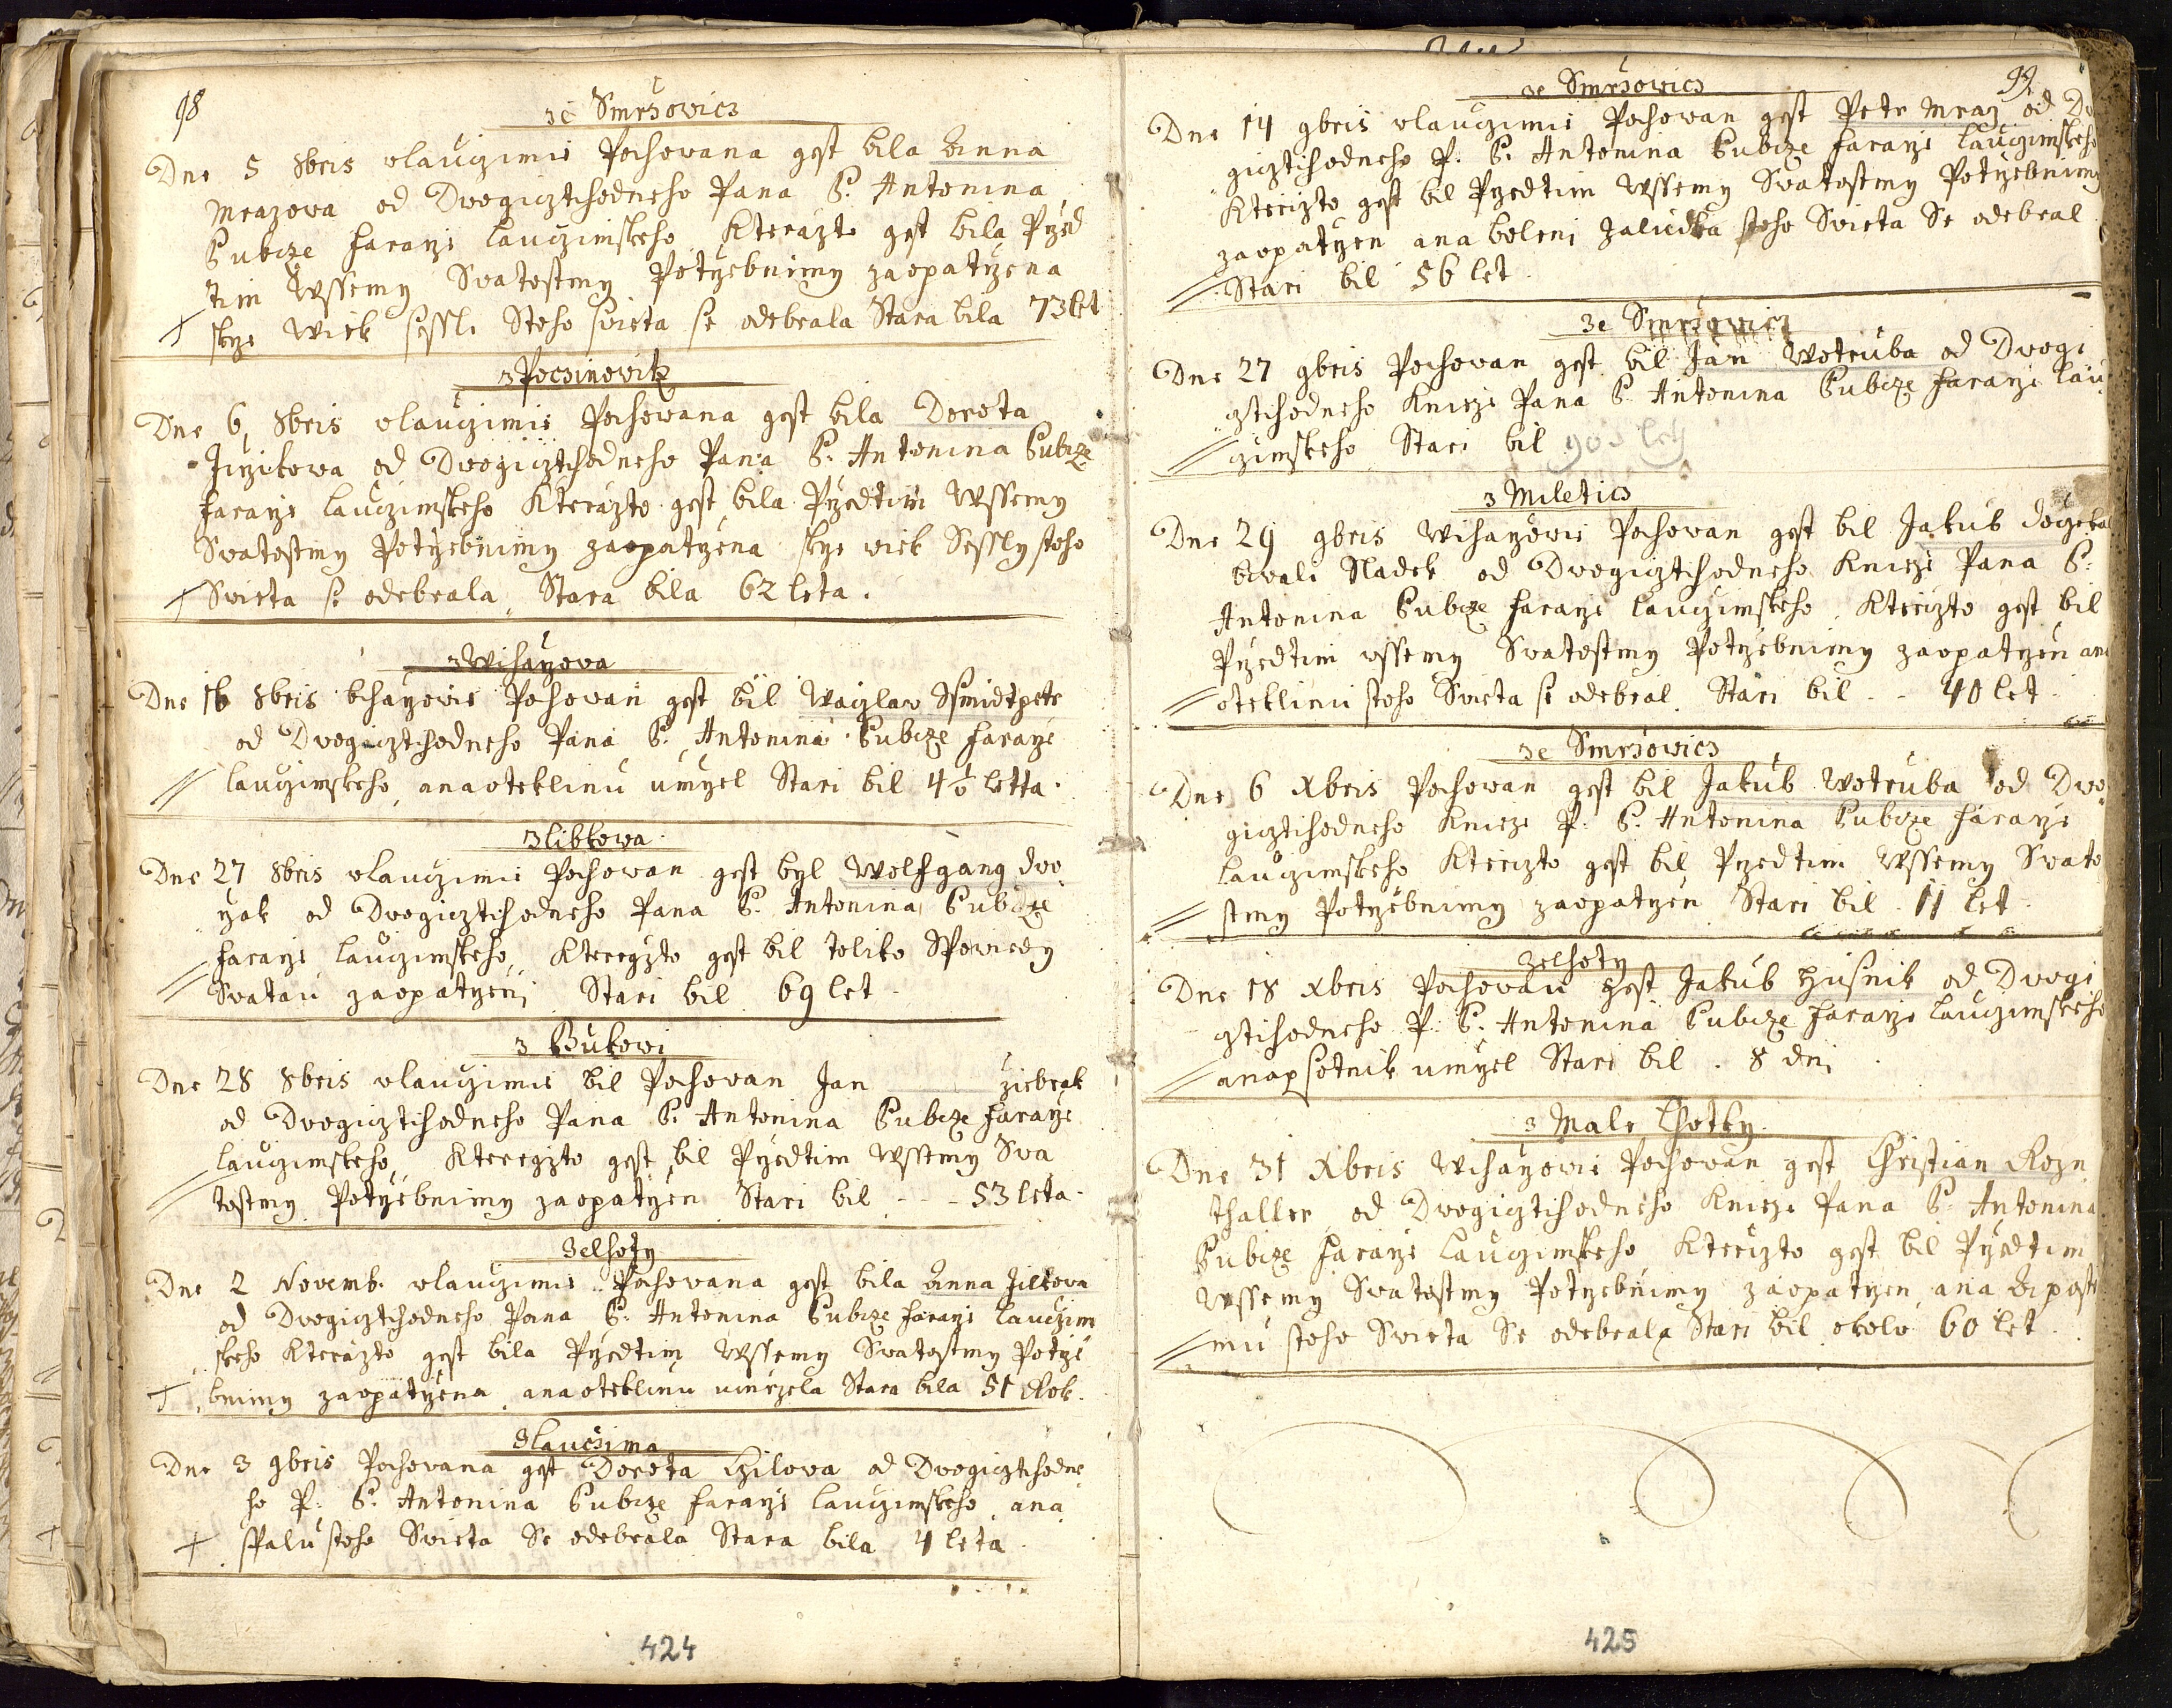 98
3e Smrżovicz
Dne 5 8bris vlauczimie Pochovana gest bila Anna
Mrazova od Dvogicztihodneho Pana P. Antonina
Pubcze Fararze Lauczimskeho Kterazto gest bila Przed
tim Wssemy Svatostmy Potrzebnimy zaopatrzena
skrze Wiek sessli stoho svieta se odebrala Stara bila 73 let
3 Poczinovitz
Dne 6 8bris vlauczimie Pochovana gest bila Dorota
Jirzikowa od Dvogicztihodneho Pana P. Antonina Pubcze
Fararze Lauczimskeho Kterazto gest bila Przedtim Wssemy
Svatostmy Potrzebnimy zaopatrzena skrze viek Sessly stoho
Svieta se odebrala, Stara bila 62 leta.
3 Wiharzova
Dne 16 8bris bharzovie Pohovan gest bil Waczlav Ssmidtpetr
od Dvogicztihodneho Pana P. Antonina Pubcze Fararze
Lauczimskeho, anaoteklinu umrzel Stari bil 4½ letta.
3 libkova
Dne 27 8bris vlauczimie Pochovan gest byl Wolfgang dvo
rzak od Dvogicztihodneho Pana P. Antonina Pubcze
Fararze Lauczimskeho, Kteregzto gest bil toliko Spoviedy
Svatau zaopatrzeni Stari bil 69 let
3 Bukovi
Dne 28 8bris vlauczimie bil Pochovan Jan ziebrak
od Dvogicztihodneho Pana P. Antonina Pubcze Fararze
Lauczimskeho, Kteregzto gest bil Przedtim Wssemy Sva
tostmy Potrzebnimy zaopatrzen Stari bil - - - 53 leta.
3elhoty
Dne 2 Novemb. vlauczimie Pochovana gest bila Anna Jilkova
od Dvogicztihodneho Pana P. Antonina Pubcze Fararze Lauczim
skeho Kterazto gest bila Przedtim Wssemy Svatostmy Potrze
bnimy zaopatrzena anaoteklinu umrzela Stara bila 51 Rok.
3lauczima
Dne 3 9bris Pochovana gest Dorota Chilova od Dvogicztihodne
ho P. P. Antonina Pubcze Fararze Lauczimskeho, ana
Psalu stoho Svieta Se odebrala Stara bila 4 leta
424
99
3e Smrżovicz
Dne 14 9bris vlauczimie Pochovan gest Petr Mraz od Dvo
gicztihodneho P. P. Antonina Pubcze Fararze Lauczimskeho
Kterizto gest bil Przedtim Wssemy Svatostmy Potrzebnimy
zaopatrzen ana boleni Zaludka stoho Svieta Se odebral
Stari bil 56 let
3e Smrżovicz
Dne 27 9bris Pochovan gest bil Jan Wotruba od Dvogi
cztihodneho Knieze Pana P. Antonina Pubcze Fararze Lau
czimskeho Stari bil
3 Mileticz
Dne 29 9bris Wiharzovie Pochovan gest bil Jakub
bivali Sladek od Dvogicztihodneho Knieze Pana P.
Antonina Pubcze Fararze Lauczimskeho, Kterizto gest bil
Przedtim vssemy Svatostmy Potrzebnimy zaopatrzen ana
oteklinu stoho Svieta se odebral. Stari bil - - 40 let
3e Smrżovicz
Dne 6 Xbris Pochovan gest bil Jakub Wotruba od Dvo
gicztihodneho Knieze P. P. Antonina Pubcze Fararze
Lauczimskeho Kterizto gest bil Przedtim Wssemy Svato
stmy Potrzebnimy zaopatrzen Stari bil . 11 let
3elhoty
Dne 18 Xbris Pochovan gest Jakub Husnik od Dvogi
cztihodneho P. P. Antonina Pubcze Fararze Lauczimskeho
anapsotnik umrzel Stari bil . 8 dni
3 Male Lhotky
Dne 31 Xbris Wiharzovie Pochovan gest Christian Rozn
thaller od Dvogicztihodneho Knieze Pana P. Antonina
Pubcze Fararze Lauczimskeho Kterizto gest bil Przedtim
Wssemy Svatostmy Potrzebnimy zaopatrzen ana
mu stoho Svieta Se odebrala Stari bil okolo 60 let
425